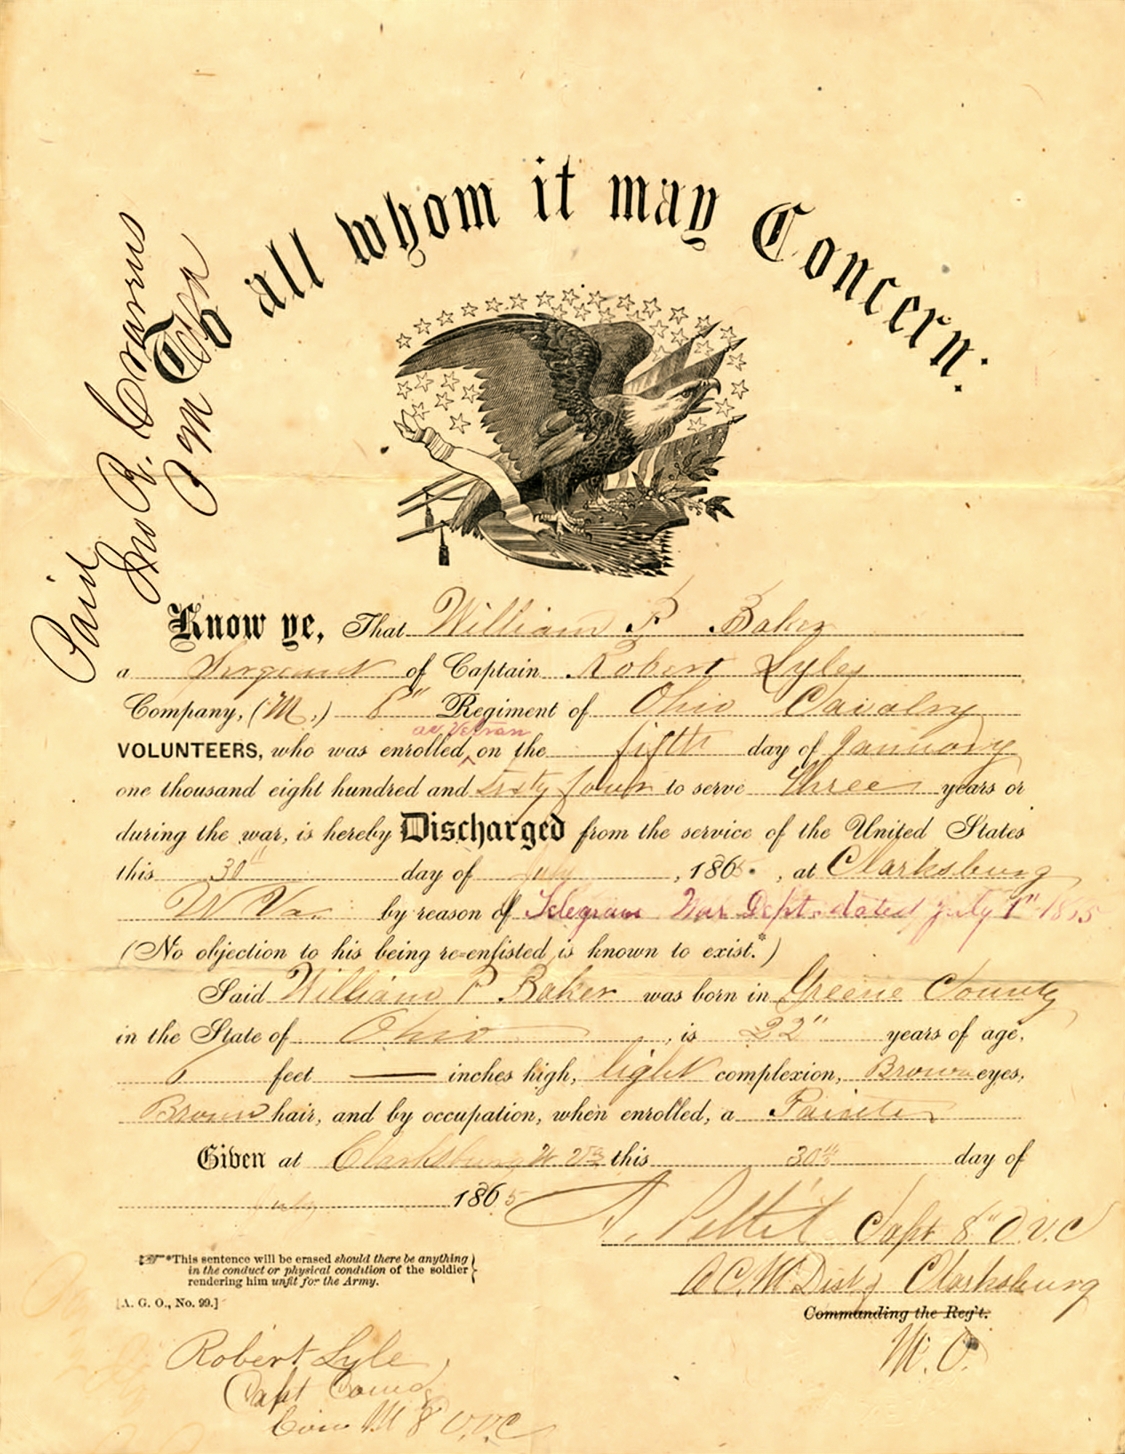 To all whom it may Concern:
Paid
Jno R. Cravens
P M USA
Know ye, That William P Baker
a Sergeant of Captain Robert Lyles
Company, (M.) 8" Regiment of Ohio Cavalry
as Vetran
VOLUNTEERS, who was enrolled, on the fifth day of January
one thousand eight hundred and Sixty four to serve three years or
during the war, is hereby Discharged from the service of the United States
this 30" day of July, 1865, at Clarksburg
W Va. by reason of Telegram War Dept. dated July 1st 1865
(No objection to his being re-enlisted is known to exist.*)
Said William P Baker was born in Greene County
in the State of Ohio, is 22" years of age,
6 feet — inches high, light complexion, Brown eyes,
Brown hair, and by occupation, when enrolled, a Painter
Given at Clarksburg W Va this 30th day of
July 1865
A. Pettit Capt 8" O V. C
A C. M Dist of Clarksburg
Commanding the Reg't.
M. O.
*This sentence will be erased should there be anything
in the conduct or physical condition of the soldier
rendering him unfit for the Army.
[A. G. O., No. 99.]
Robert Lyle,
Capt Comdg
Com M 8 O.V.C